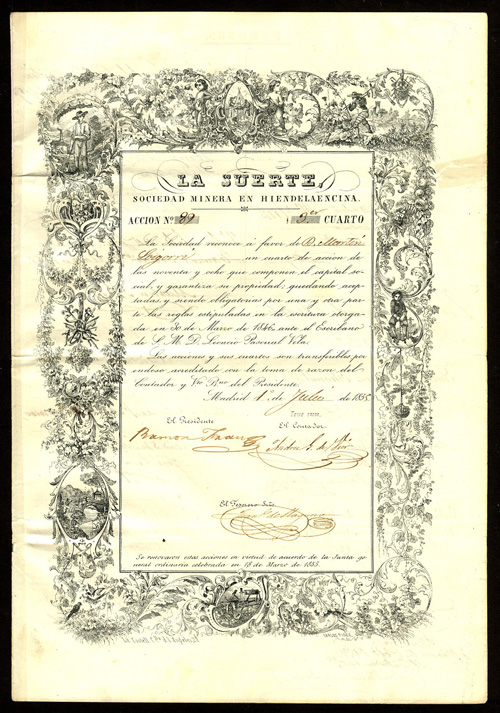 LA SUERTE,
SOCIEDAD MINERA EN HIENDELAENCINA.
ACCION Nº 89 3er CUARTO
La Sociedad reconoce á favor de D. Martin
Segorve un cuarto de accion de
las noventa y ocho que componen el capital so-
cial, y garantiza su propiedad; quedando acep-
tadas y siendo obligatorias por una y otra par-
te las reglas estipuladas en la escritura otorga-
da en 30 de Marzo de 1846 ante el Escribano
de S. M. D. Leoncio Pascual Vela.
Las acciones y sus cuartos son transferibles por
endoso acreditado con la toma de razon del
Contador, y Vto. Bno. del Presidente.
Madrid 1º de Julio de 1855
Tomé razon,
El Presidente El Contador
Ramon
El Tesorero
Se renovaron estas acciones en virtud de acuerdo de la Junta ge-
neral ordinaria celebrada en 18 de Marzo de 1855.